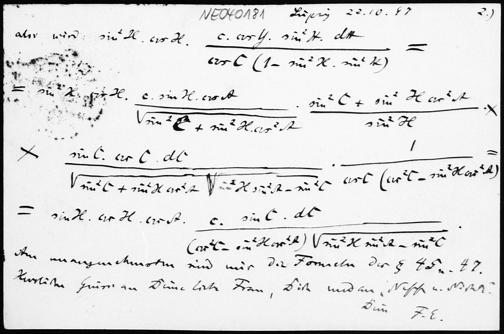 NE040181 Leipzig 22.10.47 2.)
also wird: sin²H. cos H. \frac{c. cos y. sin²H. dH}{cos C (1 - sin²H. sin²A)} =
= sin²H. cos H. \frac{c. sin H. cos A}{\sqrt{sin²C + sin²H. cos²A}} . \frac{sin²C + sin²H cos²A}{sin²H} ×
× \frac{sin C. cos C. dC}{\sqrt{sin²C + sin²H cos²A} \sqrt{sin²H sin²A - sin²C}} . \frac{1}{cos C (cos²C - sin²H cos²A)} =
= sin H. cos H. cos A. \frac{c. sin C. dC}{(cos²C - sin²H cos²A) \sqrt{sin²H sin²A - sin²C}} .
Am unangenehmsten sind mir die Formeln der § 45 u. 47.
Herzliche Grüsse an Deine liebe Frau, Dich und an
Dein F. E.